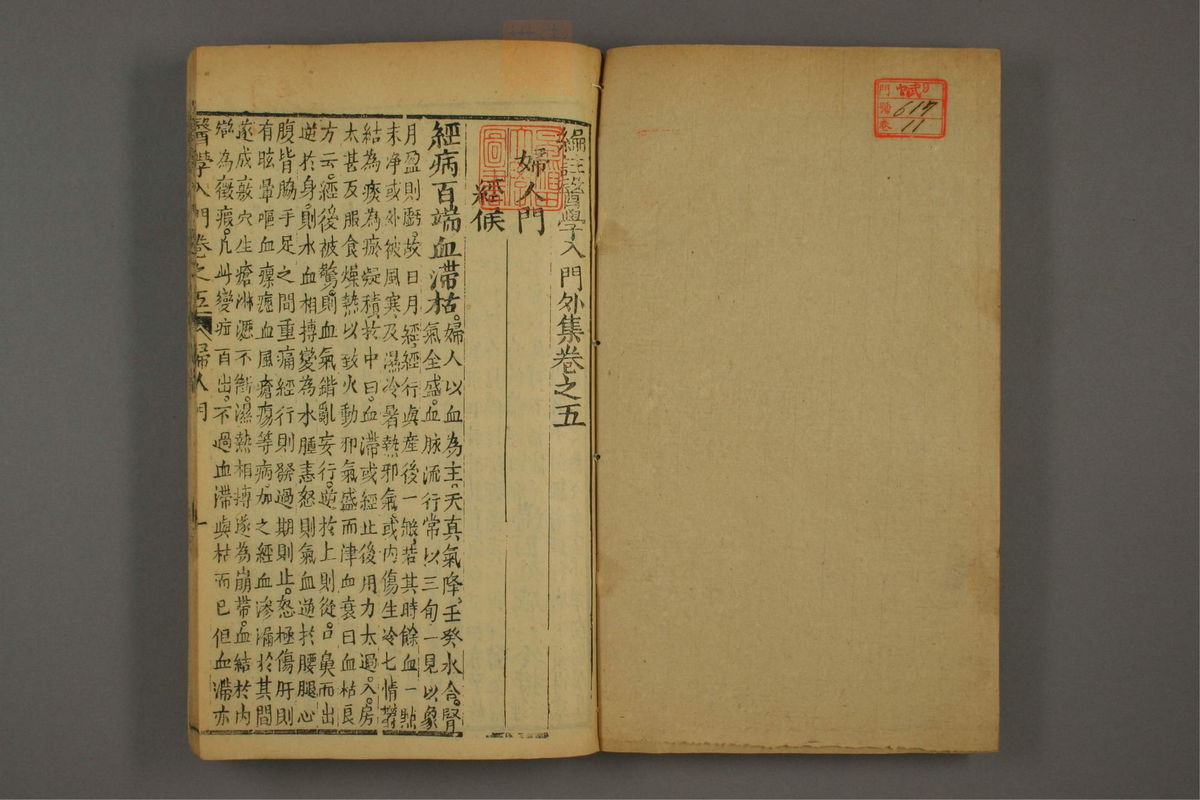 門
號 617
卷 11
編註醫學入門外集卷之五
婦人門
經候
經病百端血滯枯。婦人以血為主。天真氣降。壬癸水合。腎
氣全盛。血脉流行。常以三旬一見。以象
月盈則虧。故曰月經。經行與産後一般。若其時餘血一點
未净。或外被風寒。及濕冷暑熱邪氣。或内傷生冷七情鬱
結。為痰為瘀。凝積於中。曰血滯。或經止後用力太過。入房
太甚。及服食燥熱。以致火動。邪氣盛而津血衰曰血枯。良
方云。經後被驚。則血氣錯亂妄行。逆於上則從口鼻而出
逆於身。則水血相搏變為水腫。恚怒則氣血逆於腰腿心
腹背脇手足之間重痛。經行則發。過期則止。怒極傷肝則
有眩暈嘔血瘰癧血風瘡瘍等病。加之經血滲漏於其間
遂成竅穴。生瘡淋瀝不斷。濕熱相搏。遂為崩帶。血結於内
變為癥瘕。凡此變症百出。不過血滯與枯而已。但血滯亦
醫學入門卷之五 婦人門 一